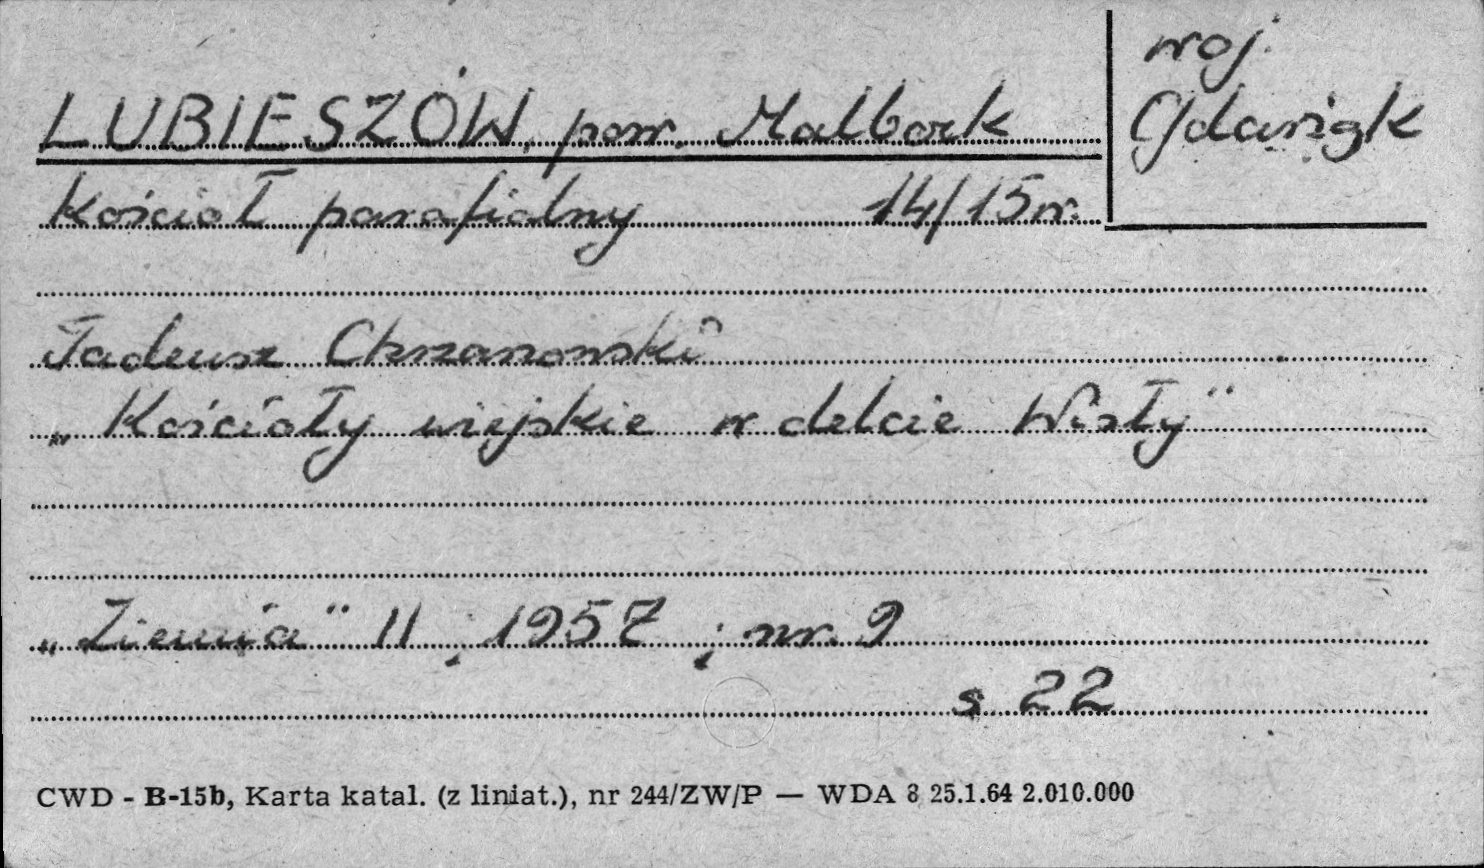 woj.
Gdańsk
LUBIESZÓW, pow. Malbork
Kościoł parafialny 14/15 w.
Tadeusz Chrzanowski
„Kościoły wiejskie w delcie Wisły"
„Ziemia" II, 1957, nr. 9
s 22
CWD - B-15b, Karta katal. (z liniat.), nr 244/ZW/P — WDA 8 25.1.64 2.010.000